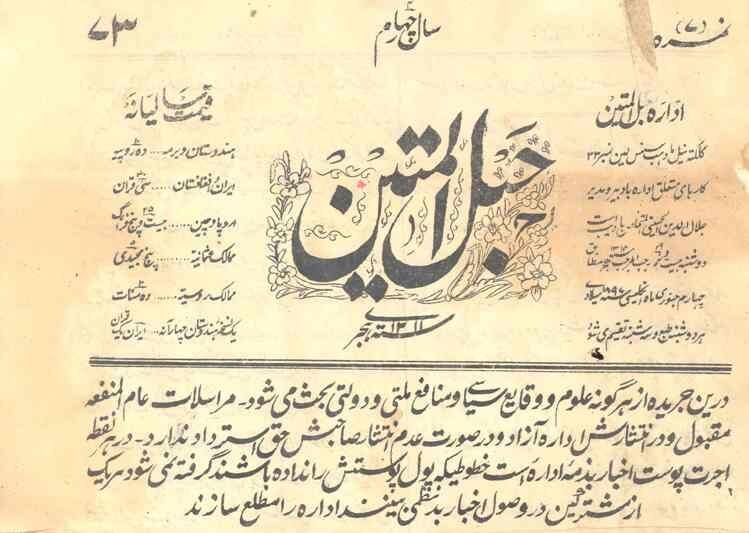 نمره (۷)
سال چهارم
۷۳
اداره حبل المتین
کلکته
کارهای متعلق اداره با دبیر و مدیر
جلال الدین الحسینی است
دوشنبه
چهارم جنوری ماه انگلیسی ۱۸۹۷ میلادی
هر دوشنبه طبع و سه شنبه تقسیم می شود
حبل المتین
۱۳۱۱ هجری
قیمت سالیانه
هندوستان و برمه ... ده روپیه
ایران و افغانستان ... سی قران
اروپا و چین ... بیست و پنج فرانگ
ممالک عثمانیه ... پنج مجیدی
ممالک روسیه ... ده منات
یک نسخه هندوستان چهار آنه ... ایران یکقران
درین جریده از هرگونه علوم و وقایع سیاسی و منافع ملتی و دولتی بحث می شود ـ مراسلات عام المنفعه
مقبول و در انتشارش اداره آزاد و در صورت عدم انتشار صاحبش حق استرداد ندارد ـ در هر نقطه
اجرت پوست اخبار بذمه اداره است خطوطیکه پول پوستش را نداده باشند گرفته نمی شود هر یک
از مشترکین در وصول اخبار بدنظمی بینند اداره را مطلع سازند